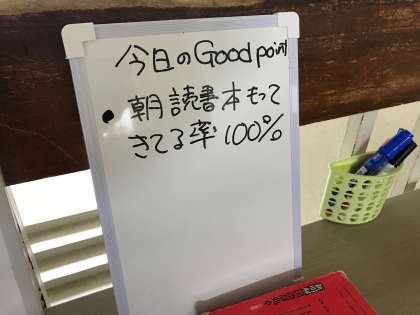 今日のGood point
●朝読書本もって
きてる率100%